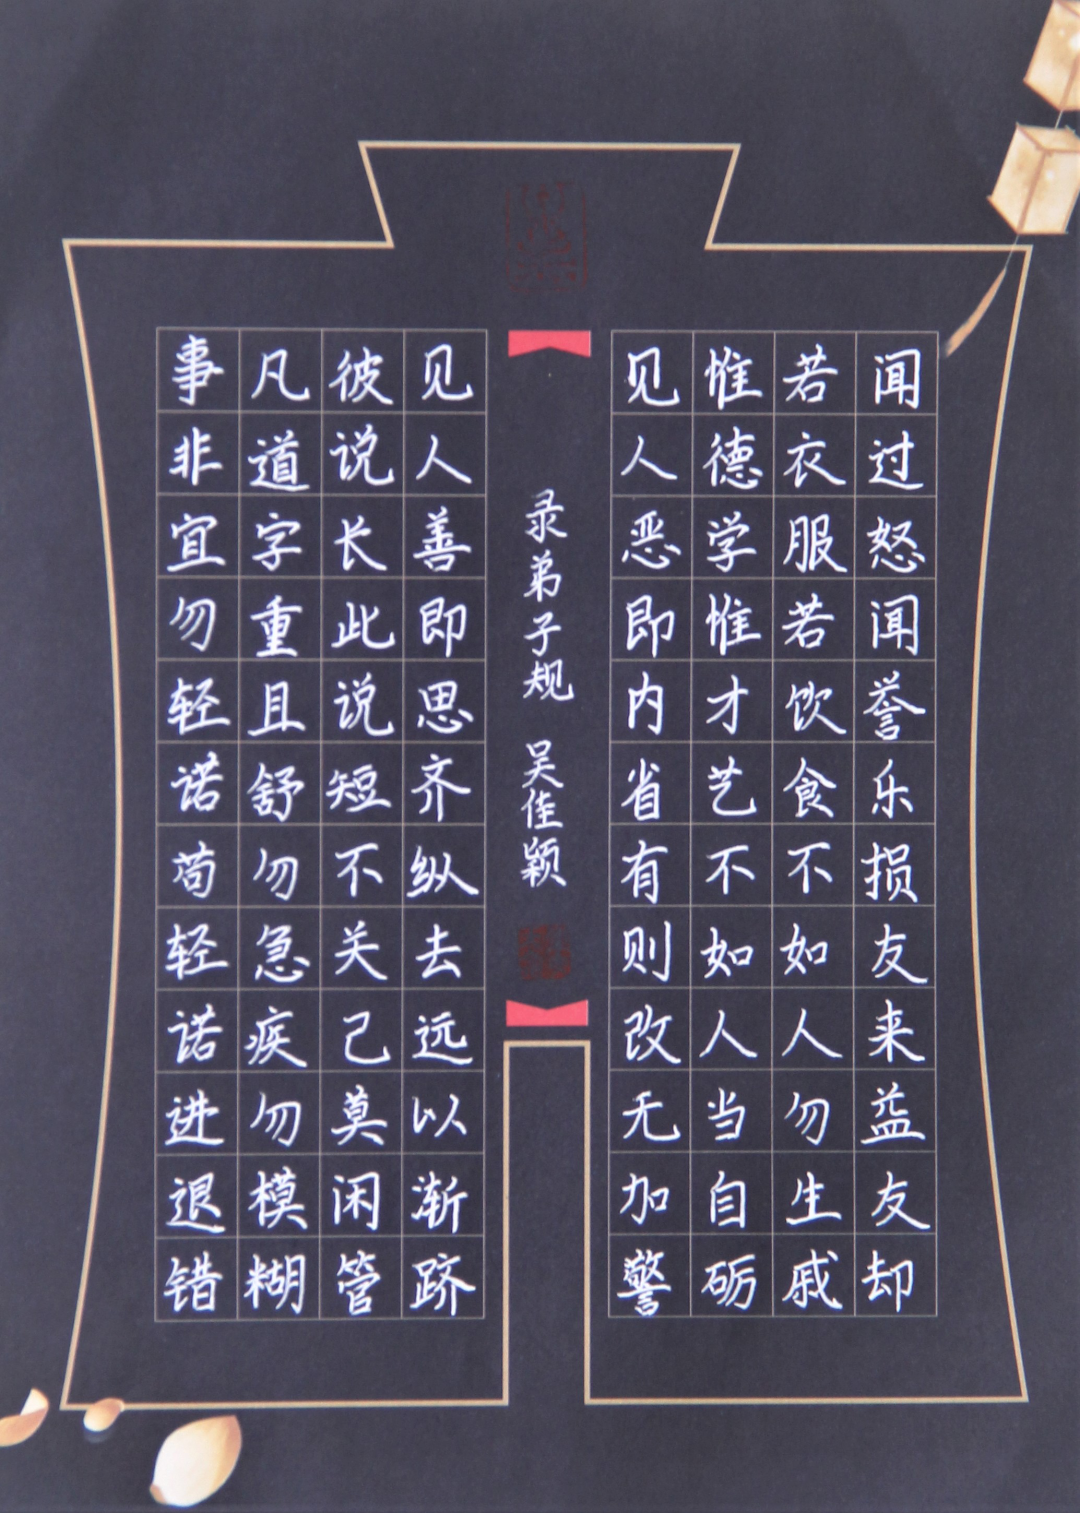 事非宜勿轻诺苟轻诺进退错
凡道字重且舒勿急疾勿模糊
彼说长此说短不关己莫闲管
见人善即思齐纵去远以渐跻
见人恶即内省有则改无加警
惟德学惟才艺不如人当自砺
若衣服若饮食不如人勿生戚
闻过怒闻誉乐损友来益友却
录弟子规 吴佳颖